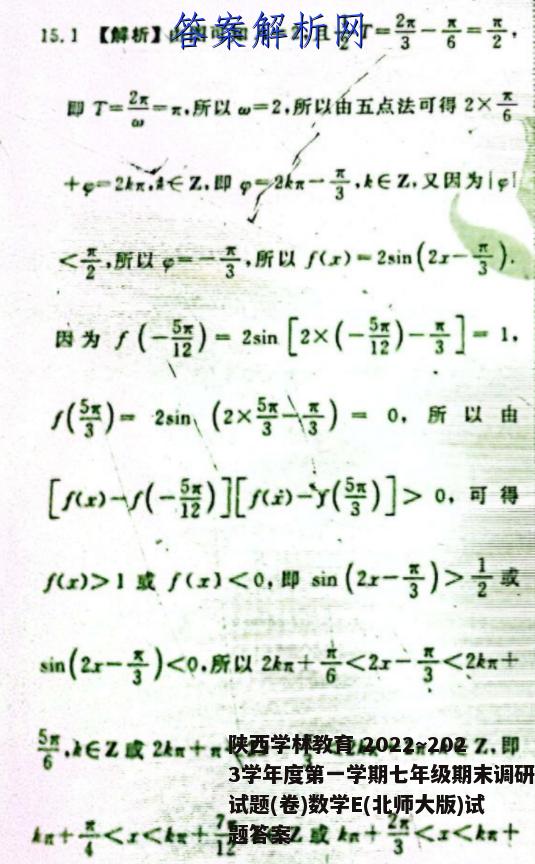 答案解析网
15.1 【解析】由图可知 A=2,且 T/2=2π/3−π/6=π/2,
即 T=2π/ω=π,所以 ω=2,所以由五点法可得 2×π/6
+φ=2kπ,k∈Z,即 φ=2kπ−π/3,k∈Z,又因为|φ|
<π/2,所以 φ=−π/3,所以 f(x)=2sin(2x−π/3).
因为 f(−5π/12)=2sin[2×(−5π/12)−π/3]=1,
f(5π/3)= 2sin (2×5π/3−π/3) = 0, 所以由
[f(x)−f(−5π/12)][f(x)−f(5π/3)]>0,可得
f(x)>1 或 f(x)<0,即 sin(2x−π/3)>1/2 或
sin(2x−π/3)<0,所以 2kπ+π/6<2x−π/3<2kπ+
5π/6,k∈Z 或 2kπ+π Z,即
kπ+π/4<x<kπ+7π/12 Z 或 kπ+2π/3<x<kπ+
陕西学林教育 2022~202
3学年度第一学期七年级期末调研
试题(卷)数学E(北师大版)试
题答案